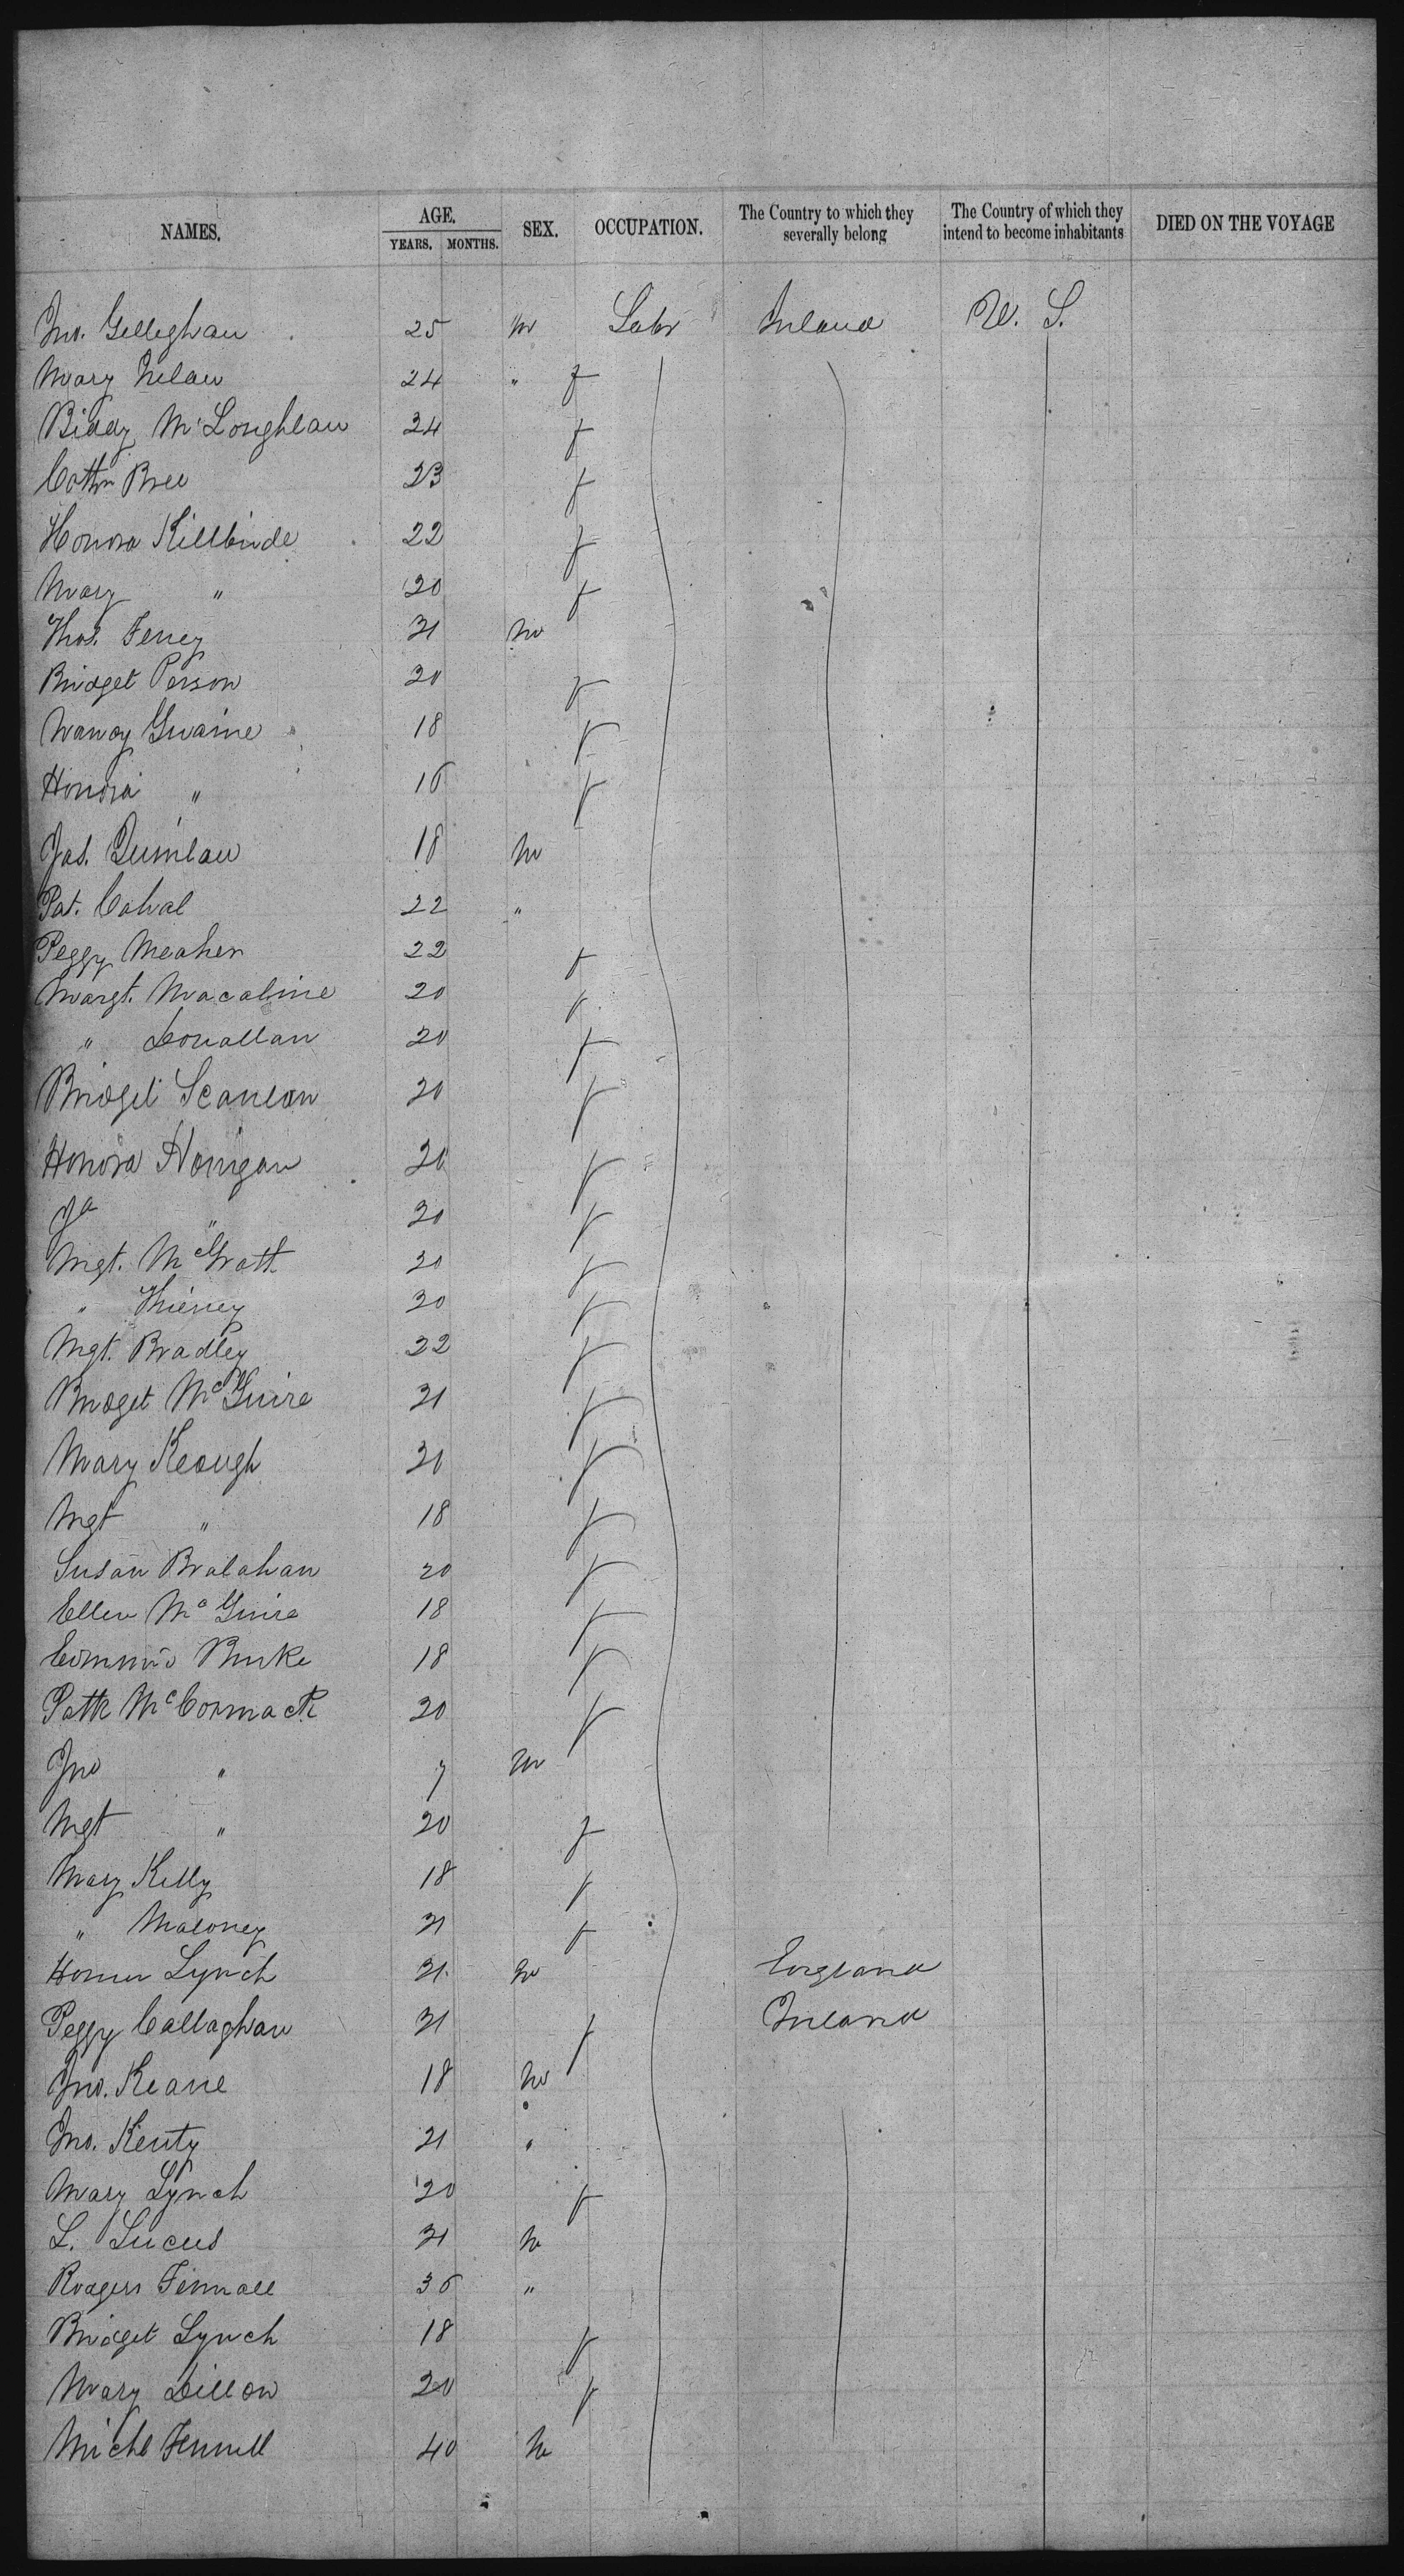 NAMES. AGE. YEARS. MONTHS. SEX. OCCUPATION. The Country to which they severally belong The Country of which they intend to become inhabitants DIED ON THE VOYAGE
Jno. Gelleghan 25 m Labr Ireland U. S.
Mary 24 " f
Biddy McLoughlan 24 f
Cathn Bree 23 f
Honora Killbride 22 f
Mary " 20 f
Thos. Feney 21 m
Bridget Person 20 f
Nancy Gwaine 18 f
Honora " 16 f
Jas. Quinlan 18 m
Pat. Cahal 22 "
Peggy Meaher 22 f
Margt. Macaline 20 f
" Donallan 20 f
Bridget Scanlon 20 f
Honora Horrigan 20 f
Ja " 20 f
Mgt. McGratt 20 f
" 20 f
Mgt. Bradley 22 f
Bridget McGuire 21 f
Mary Keough 21 f
Mgt " 18 f
Susan Bralahan 20 f
Ellen McGuire 18 f
Edmund Burke 18 f
Patk McCormack 20 f
Jno " 7 m
Mgt " 20 f
Mary Kelly 18 f
" Maloney 21 f
Lynch 21 m England
Peggy Callaghan 21 f Ireland
Jno. Keane 18 m
Jno. Kenty 21 "
Mary Lynch 20 f
L. Lucus 21 m
Rodgers Fennall 36 "
Bridget Lynch 18 f
Mary Dillon 20 f
Michl Fennell 40 m